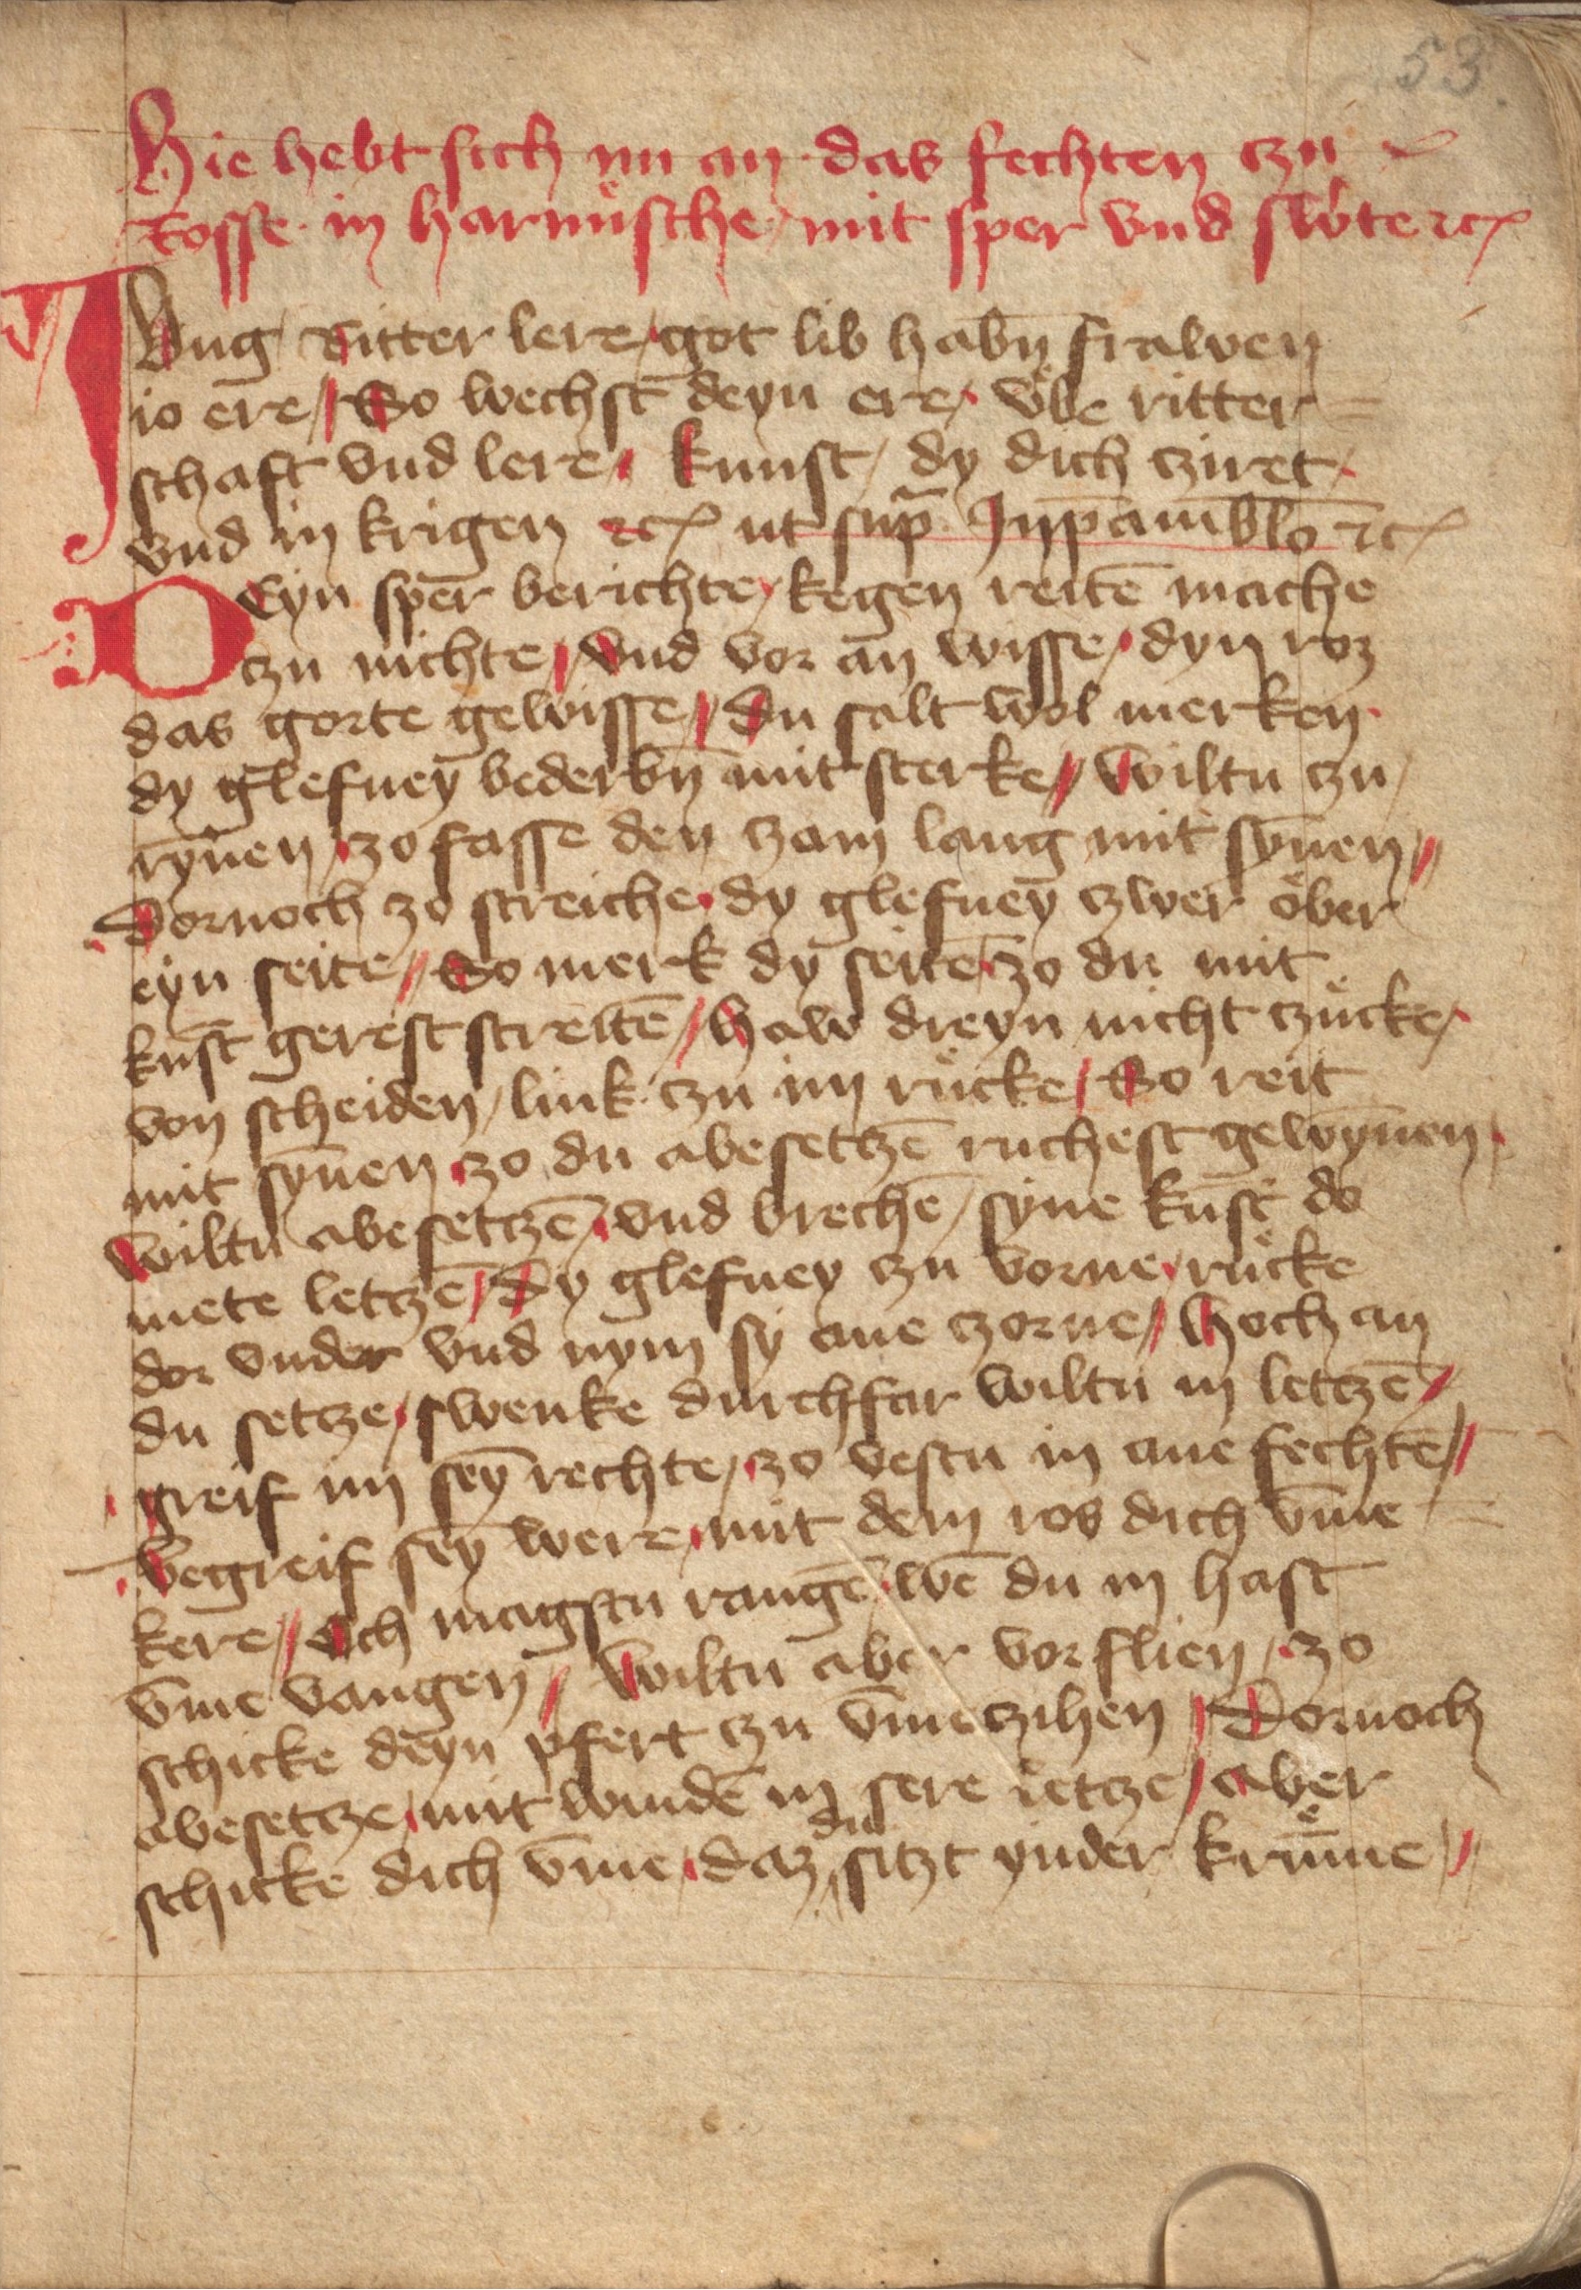 53.
Hie hebt sich nu an das fechten czu
Rosse in harnüsche mit sper vnd swerte ꝛc
JVng Ritter lere / got lib habn̄ frawen
io ere // So wechst deyn ere / vͤbe ritter=
schaft vnd lere / kunst / dy dich cziret /
vnd in krigen ꝛc ut sup̄ In p̄ambl̄o ꝛc
DEyn sper berichte / kegen reitē mache
czu nichte // Vnd vor an wisse / dyn roz
das gorte gewisse // du salt wol merken
dy glefney bederbn̄ mit sterke // wiltu czu
ryn̄en / zo fasse den czam lang mit syn̄en //
Dornoch zo streiche / dy glefney czwer öber
eyn seite // So merk dy seitē zo du mit
kūst gerest streitē // haw dreyn nicht czücke /
von scheiden / link czu im rücke / So reit
mit syn̄en zo du abesetczē ruchest gewyn̄en
wiltu abesetczē / vnd brechē / syne kūst do
mete letczē // Dy glefney czu vorne / rücke
dor vnder vnd nym sy ane czorne // hoch an
du setcze / swenke durchfar wiltu in letczē //
greif im sey̅ rechte / zo vestu in ane fechtē //
Begreif sey̅ were / mit dem ros dich v̄me =
kere // Och magstu rangē wē du in hast
v̄me vangen // Wiltu aber vor flien / zo
schicke deyn pfert czu v̄me czihen // Dornoch
abesetcze / mit windē in sere letcze / aber
schicke dich v̄me / daz du sitzt ynder krüm̄e //